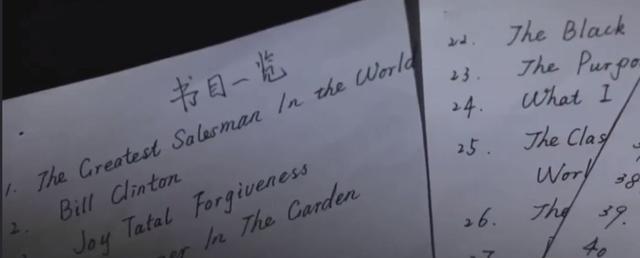 书目一览
1. The Greatest Salesman In the World
2. Bill Clinton
Joy Tatal Forgiveness
In The Garden
22. The Black
23. The Purpo
24. What I
25. The Clas
Worl
38
26. The
39.
40